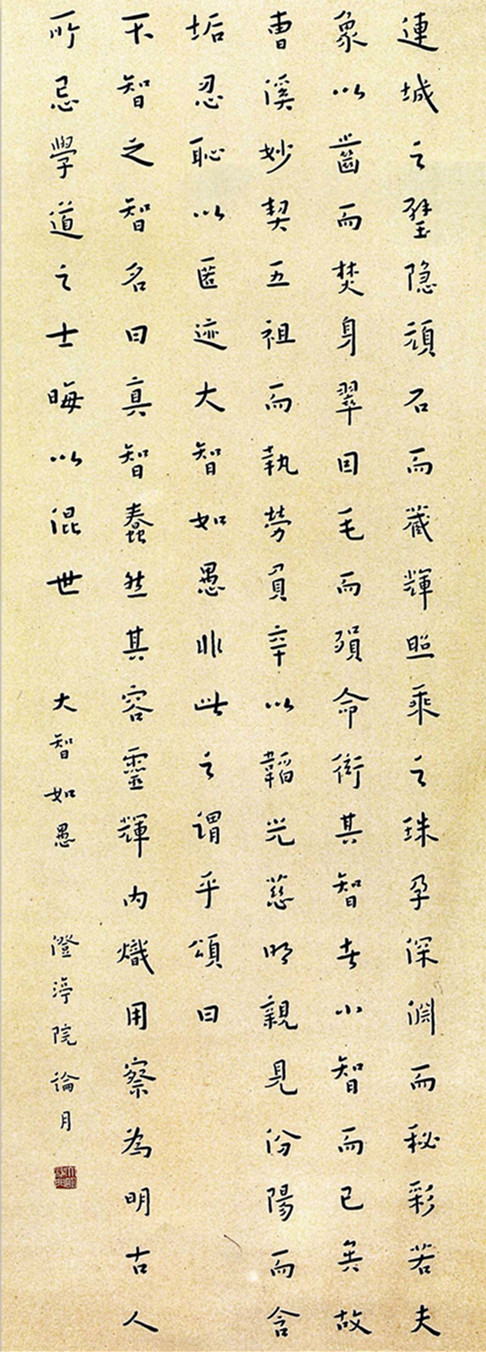 連城之璧隐頑石而藏輝照乘之珠孕深淵而秘彩若夫
象以齒而焚身翠因毛而殞命衒其智者小智而已矣故
曹溪妙契五祖而執勞負辛以韜光慈明親見汾陽而含
垢忍恥以匿迹大智如愚非此之謂乎頌曰
不智之智名曰真智蠢然其容靈輝内熾用察為明古人
所忌學道之士晦以混世 大智如愚 澄渟院論月